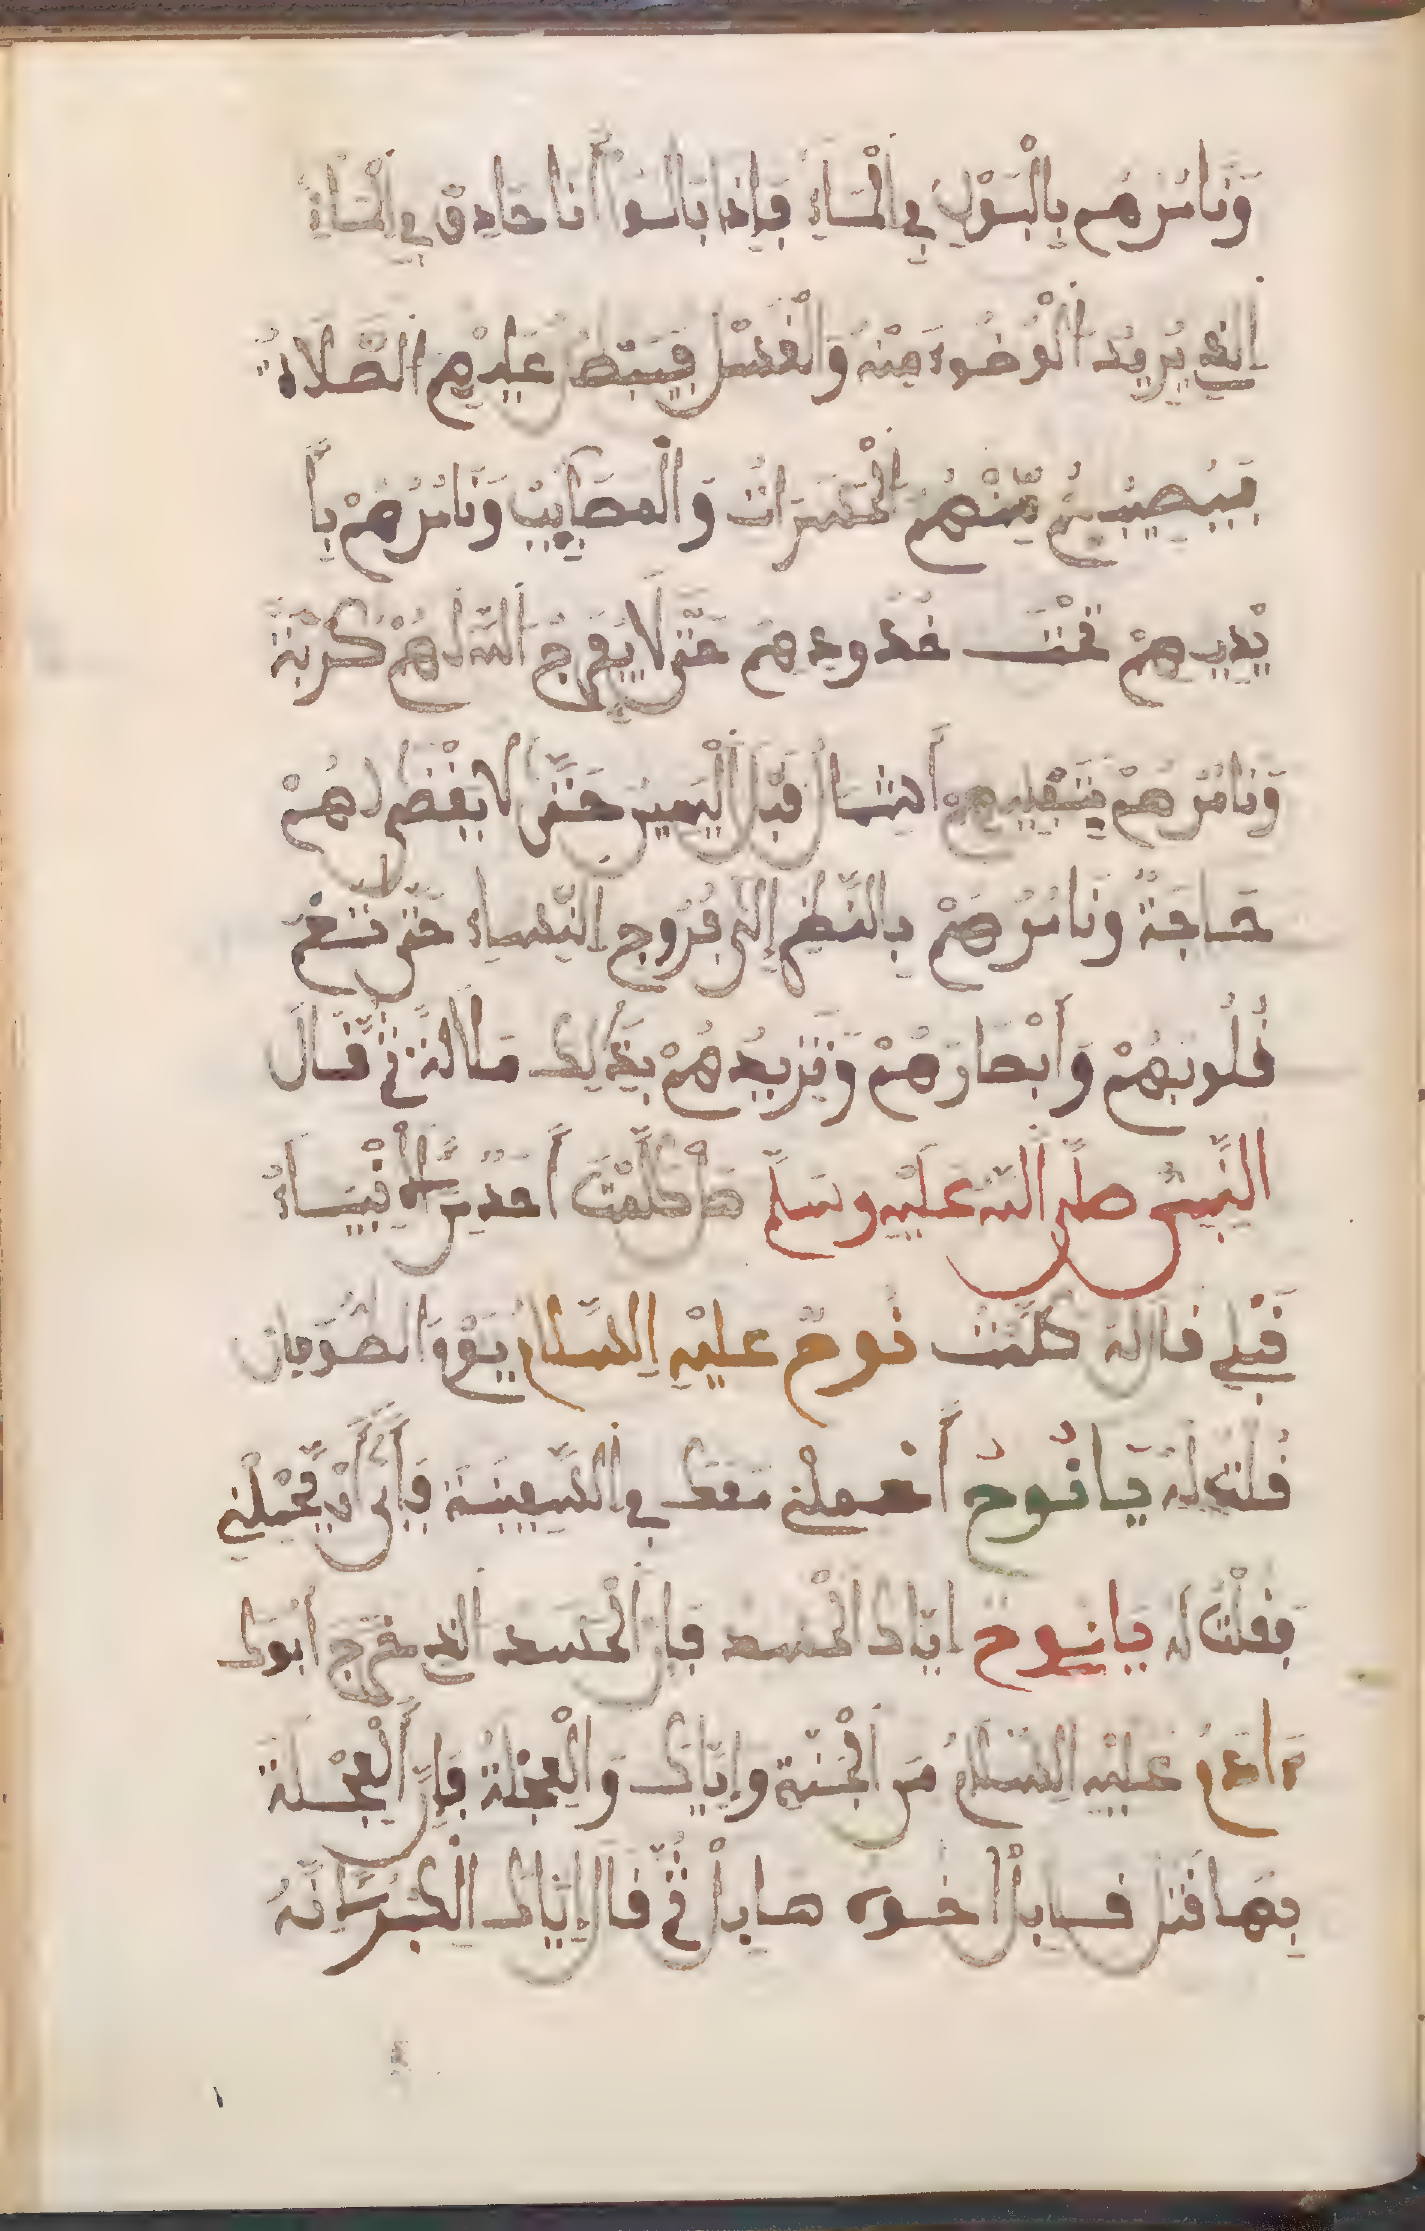 وَنَامُرُهُم بِالْبَوْلِ فِي الْمَاءِ فَإِذَا بَالُوا أَنَا حَاذِقٌ فِي الْمَاءِ
الذي يُرِيدُ الْوُضُوءَ مِنْهُ وَالْغُسْلَ فَيَبْطُلُ عَلَيْهِم الصَّلَاةُ
فَيُصِيبُهُم مِّنْهُ الْحَسَرَاتُ وَالْمَصَايِبُ وَنَامُرُهُمْ بِأَ
يْدِيهِمْ تَحْتَ خُدُودِهِمْ حَتَّى لَا يُفَرِّجَ اللَّهُ لَهُمْ كُرْبَةً
وَنَامُرُهُمْ بِتَقْلِيمِهِمْ الشمال قَبْلَ الْيَمِينِ حَتَّى لَا يَقْضِي لَهُمْ
حَاجَةً وَنَامُرُهُمْ بِالنَّظَرِ إِلَى فُرُوجِ النِّسَاءِ حَتَّى
قُلُوبُهُمْ وَأَبْصَارُهُمْ وَنَزِيدُهُمْ بِذَالِكَ ثُمَّ قَالَ
النَّبِيُّ صَلَّى اللَّهُ عَلَيْهِ وَسَلَّمَ هَلْ كَلَّمْتَ أَحَدٌ مِنَ الأَنْبِيَاءِ
قَبْلِي قَالَ لَهُ كَلَّمْتُ نُوحٌ عَلَيْهِ السَّلَامُ يَوْمَ الطُّوفَانِ
قُلْتُ لَهُ يَا نُوحُ أَحْمِلْنِي مَعَكَ فِي السَّفِينَةِ فَأَبَى أَنْ يَّحْمِلَنِي
فَقُلْتُ لَهُ يَا نُوحُ إِيَّاكَ الْحَسَدْ فَإِنَّ الْحَسَدَ الذي خَرَّجَ أَبُوكَ
ءَادَمُ عَلَيْهِ السَّلَامُ مِنَ الْجَنَّةِ وَإِيَّاكَ وَالْعَجْلَةُ فَإِنَّ الْعَجْلَةَ
بِهَا قَتَلَ قَابِلْ أَخُوهُ هَابِلْ ثُمَّ قَالَ إِيَّاكَ الْكِبْرَ إنَّهُ